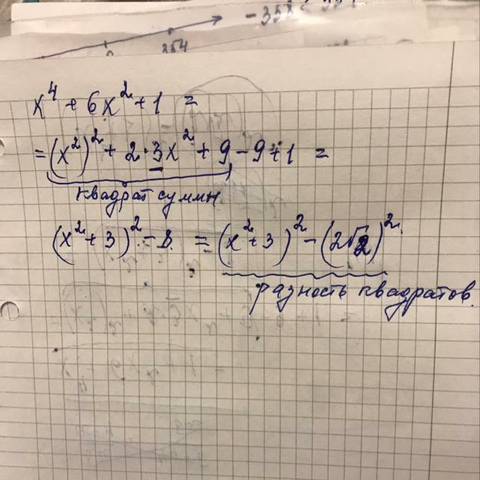 -35
354
x⁴ + 6x² + 1 =
= (x²)² + 2·3x² + 9 - 9 + 1 =
квадрат суммы
(x² + 3)² - 8 = (x² + 3)² - (2√2)²
разность квадратов.